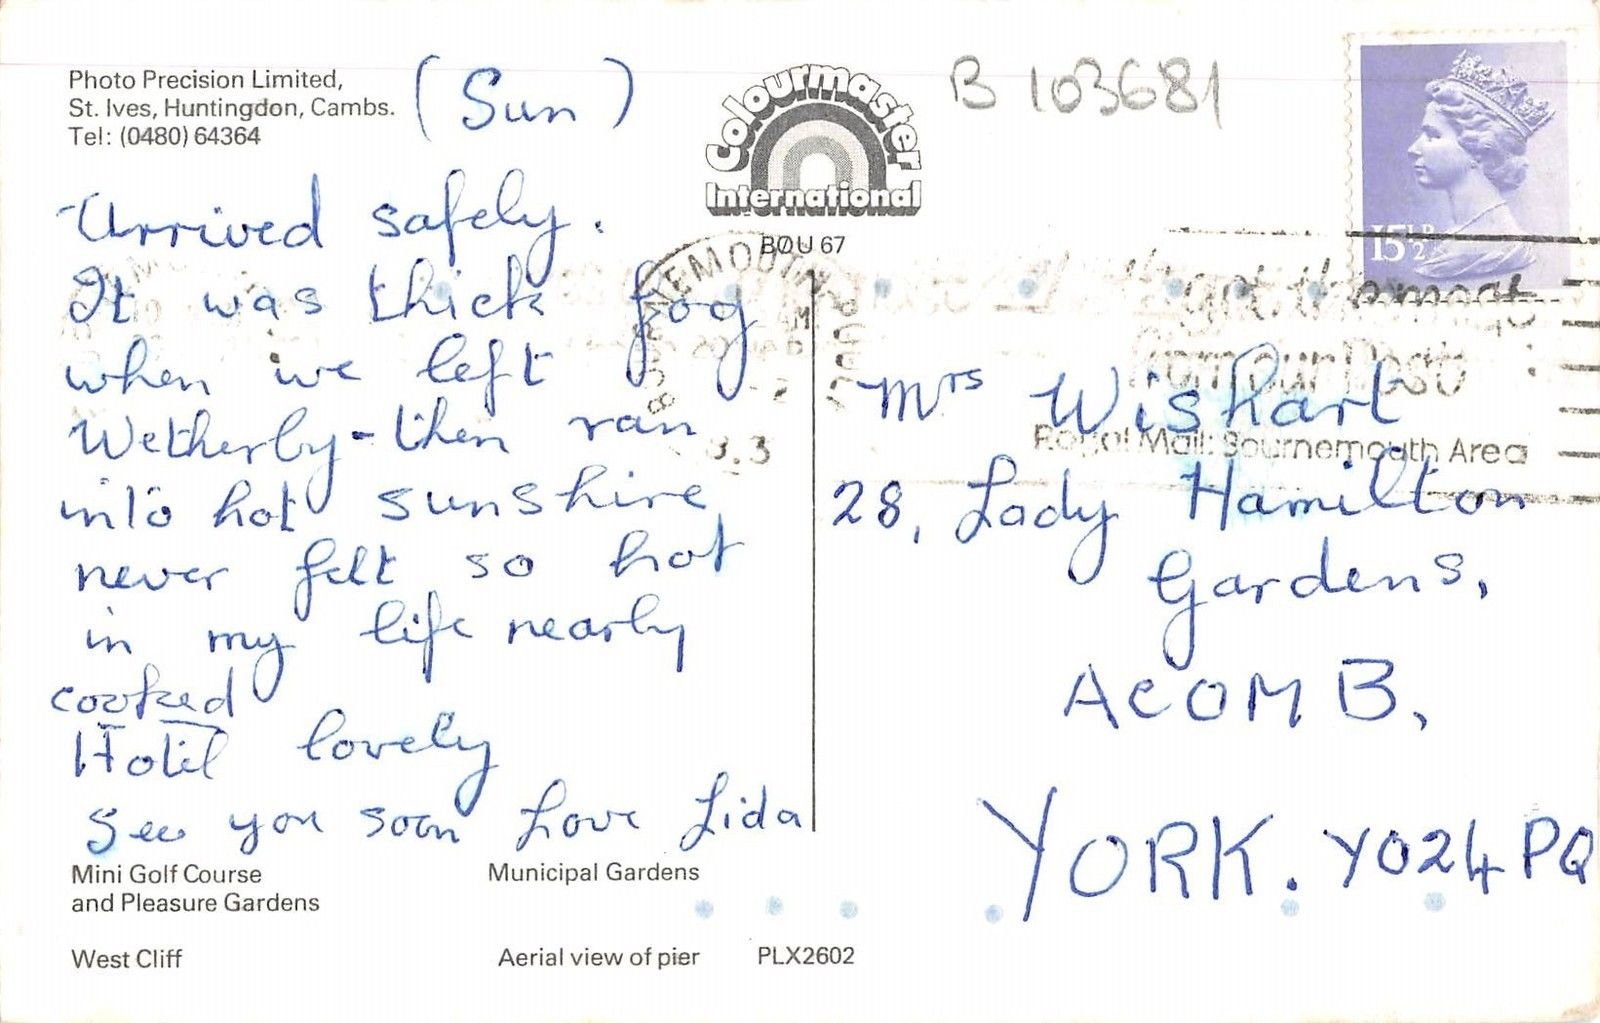 Photo Precision Limited,
St. Ives, Huntingdon, Cambs.
Tel: (0480) 64364
(Sun)
Arrived safely.
It was thick fog
when we left
Wetherby - then ran
into hot sunshine,
never felt so hot
in my life nearly
cooked
Hotel lovely
See you soon Love Lida
Mini Golf Course
and Pleasure Gardens
Municipal Gardens
West Cliff
Aerial view of pier
PLX2602
Colourmaster
International
BOU 67
B 103681
15½P
BOURNEMOUTH
Royal Mail: Bournemouth Area
Mrs Wishart
28, Lady Hamilton
Gardens,
ACOMB,
YORK. YO24PQ